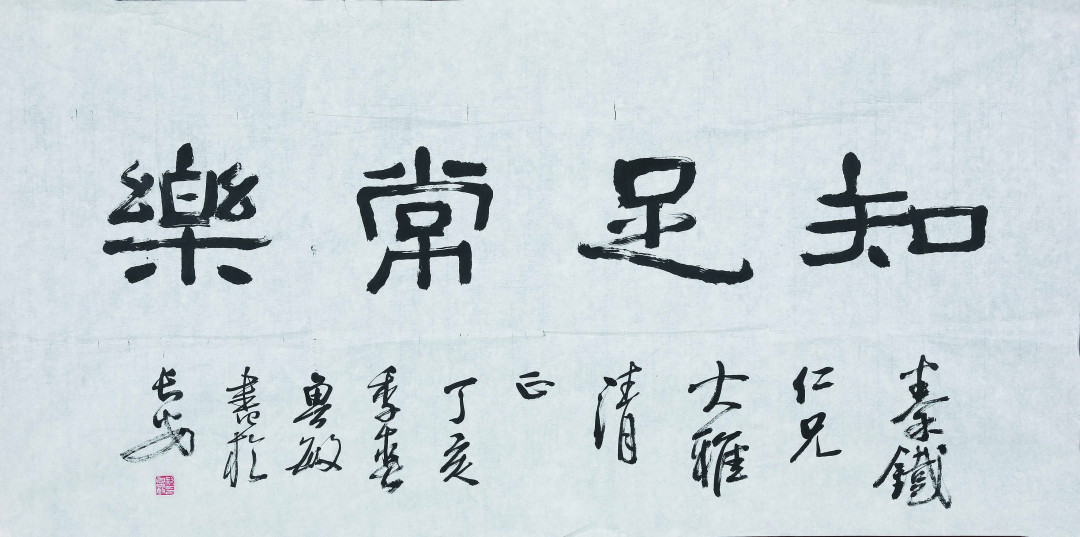 知足常樂
秦鐵
仁兄
大雅
清
正
丁亥
季春
魯敏
書於
长安